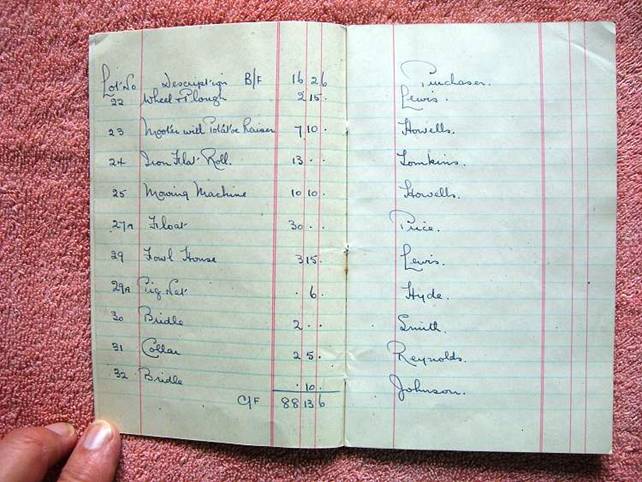 Lot No Description B/F 16 2 6 Purchaser.
22 Wheel + Plough 2 15 · Lewis.
23 with Potatoe Raiser 7 10 · Howells.
24 Iron Flat Roll. 13 · · Tomkins.
25 Mowing Machine 10 10 · Howells.
27A Float 30 · · Price.
29 Fowl House 3 15 · Lewis.
29A Pig Net · 6 · Hyde.
30 Bridle 2 · · Smith.
31 Collar 2 5 · Reynolds.
32 Bridle · 10 · Johnson.
C/F 88 13 6